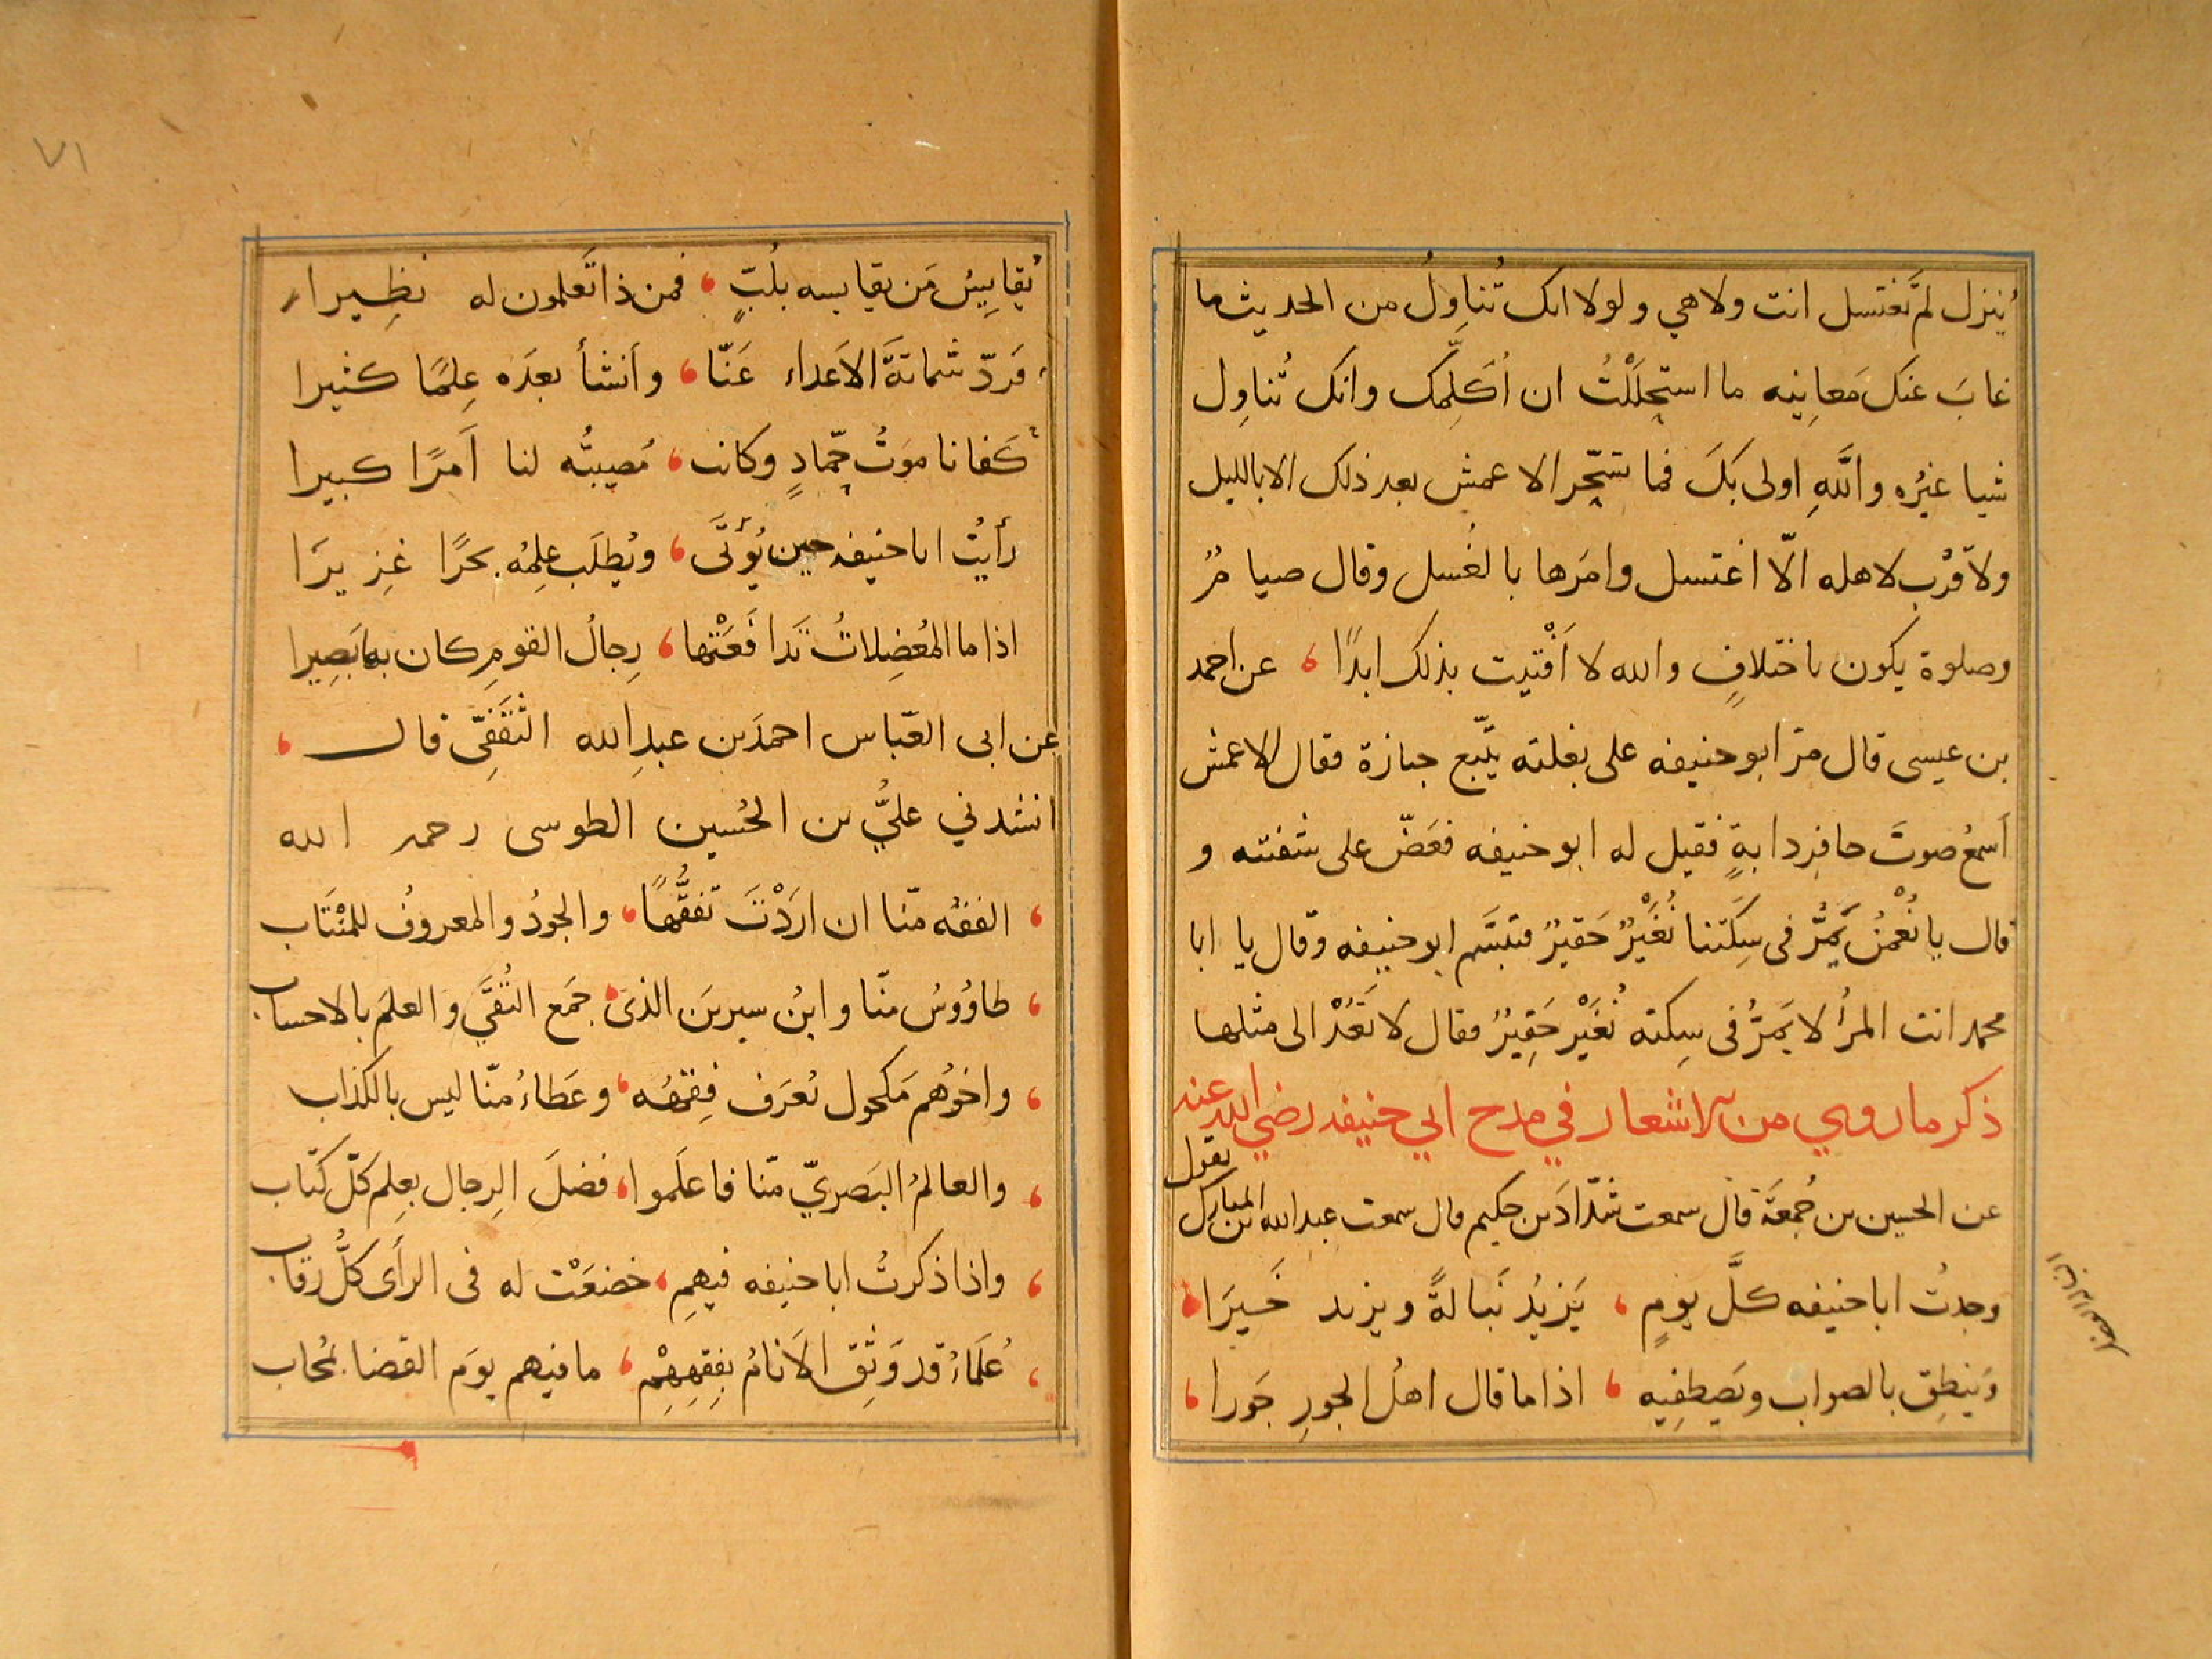 ينزل لم تغتسل انت ولا هي ولولا انك تُناوِلُ من الحديث ما
غابَ عنك مَعانِيه ما استحلَلْتُ ان اُكَلِّمك وانك تُناوِل
شيا غيرُه واللّهِ اولى بكَ فما تسحّر الاعمش بعد ذلك الا بالليل
ولا قرُب لاهله الّا اغتسل وامَرها بالغُسل وقال صيامٌ
وصلوة يكون باختلافٍ والله لا اَفْتيت بذلك ابدًا ، عن احمد
بن عيسى قال مرّ ابو حنيفه على بغلته يتّبع جنازة فقال الاعمش
اَسمعُ صوتَ حافِر دابةٍ فقيل له ابو حنيفه فعَضّ على شفته و
قال يا نُعْمٰنُ يَمُرُّ فى سِكَتنا نُغَيْرٌ حَقيرٌ فتبسَّم ابو حنيفه وقال يا ابا
محمد انت المرأُ لا يَمرُّ فى سِكته نُغَيْر حَقِيرٌ فقال لا تَعُدْ الى مثلها
ذكر ما روي من الاشعار في مدح ابي حنيفه رضي الله عنه
عن الحسين بن جُمعَة قال سمعت شدّادَ بن حكيم قال سمعت عبد الله ابن المبارك يقول
وجدتُ ابا حنيفه كلَّ يومٍ ، يَزيدُ نَبالةً ويزيد خَيرَا ،
وَينطِق بالصواب ويَصطفِيه ، اذا ما قال اهلُ الجورِ جَورا ،
٧١
يُقايِسُ مَن يقايسه بلُبّ ، فمن ذا تَعلمون له نظِيرا
فَردّ شماتةَ الاَعداء عَنّا ، وانشأ بعدَه عِلمًا كثيرا
كَفانا مَوتُ حمّادٍ وكانت ، مُصيبتُه لنا اَمرًا كبيرا
رأيتُ ابا حنيفه حين يُؤتَى ، ويُطلَب عِلمُه بحرًا غزيرَا
اذا ما المعُضِلاتُ تَدافَعَتْها ، رِجالُ القومِ كان بها بَصِيرا
عن ابى العبّاس احمدَ بن عبدِ الله الثَقَفِىّ قال ،
انشدني عليُّ بن الحُسين الطوسى رحمه الله
، الفقهُ منّا ان ارَدْتَ تفقُّهاً ، والجودُ والمعروفُ للمنْتَاب
، طاوُوسُ منّا وابنُ سيرين الذى ، جمَع التُقَى والعلمَ بالاحساب
، واخوُهم مَكحول يُعرَف فِقهُه ، وعَطاءُ منّا ليس بالكذاب
، والعالمُ البَصريّ منّا فاعلَموا ، فضلَ الرِجال بعِلم كلّ كتاب
، واذا ذكرتُ ابا حنيفه فيهِمِ ، خضعَتْ له فى الرأى كلُّ رقاب
، عُلَماءُ قد وَثِق الاَنامُ بفِقهِهِمْ ، ما فيهم يومَ القضا بمُحاب